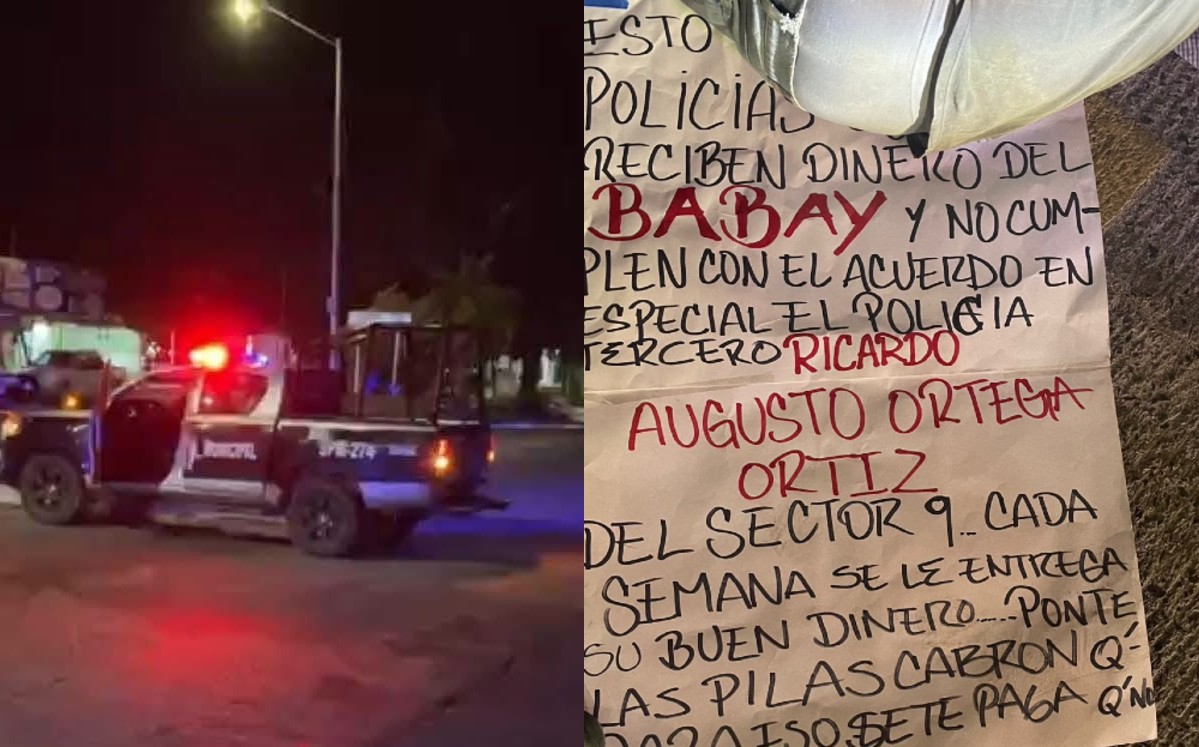 MUNICIPAL
SPM-274
ESTO
POLICIAS
RECIBEN DINERO DEL
BABAY Y NO CUM-
PLEN CON EL ACUERDO EN
ESPECIAL EL POLICIA
TERCERO RICARDO
AUGUSTO ORTEGA
ORTIZ
DEL SECTOR 9.. CADA
SEMANA SE LE ENTREGA
SU BUEN DINERO.....PONTE
LAS PILAS CABRON Q'-
PARA ESO SE TE PAGA Q'NO